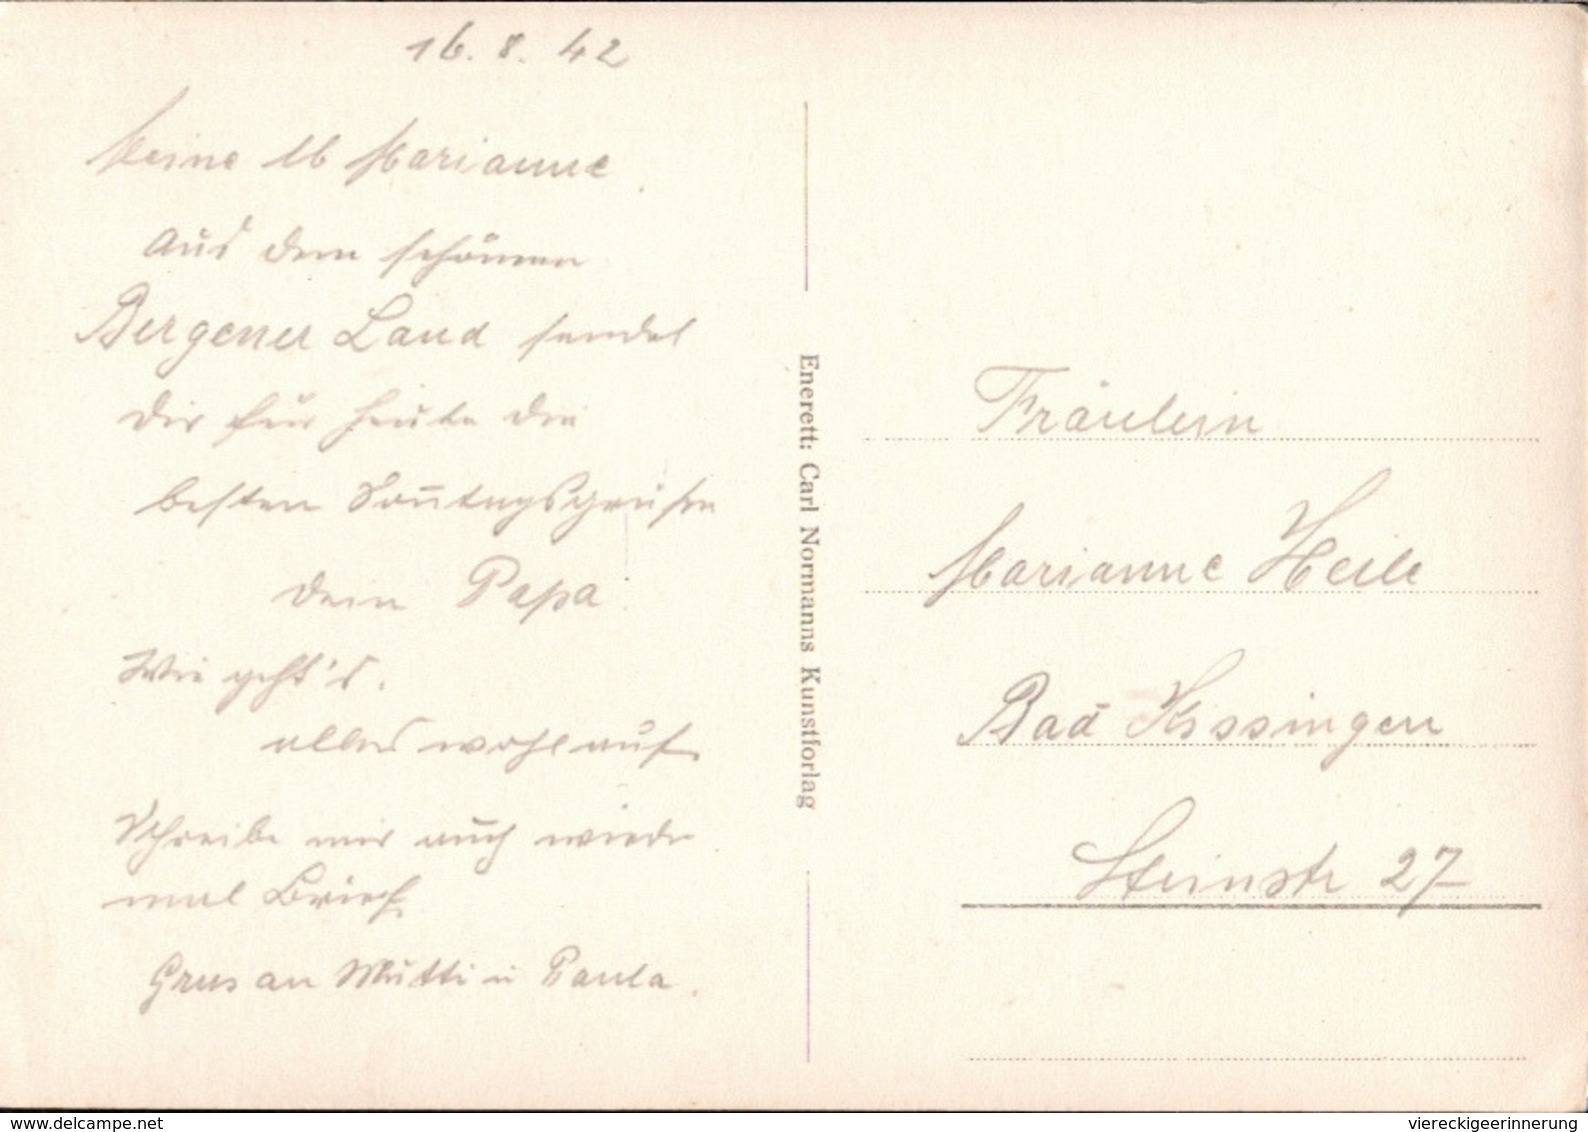 16. 8. 42
Meine lb Marianne
Aus dem schönen
Bergener Land sendet
Dir für heute die
besten Sonntagsgrüße
Dein Papa.
Wie geht's.
alles wohlauf.
Schreibe mir auch wieder
mal Brief.
Grus an Mutti u Paula.
Enerett: Carl Normanns Kunstforlag
Fräulein
Marianne Heile
Bad Kissingen
Steinstr 27
delcampe.net
viereckigeerinnerung